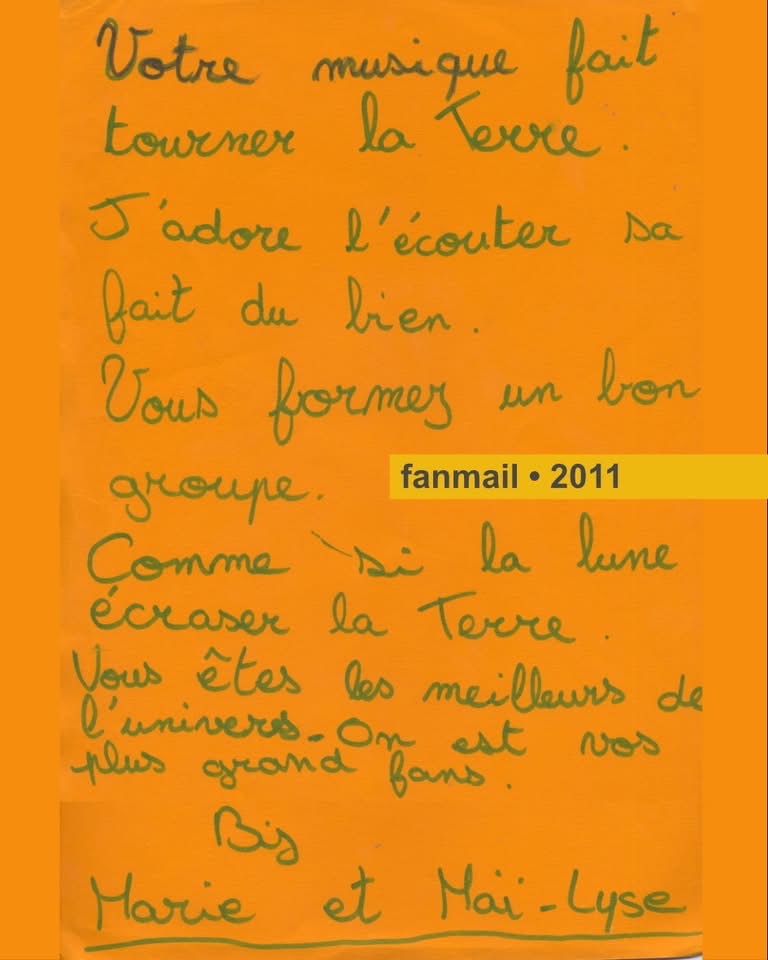 Votre musique fait
tourner la Terre.
J'adore l'écouter sa
fait du bien.
Vous formez un bon
groupe.
fanmail • 2011
Comme si la lune
écraser la Terre.
Vous êtes les meilleurs de
l'univers. On est vos
plus grand fans.
Bis
Marie et Maï-Lyse